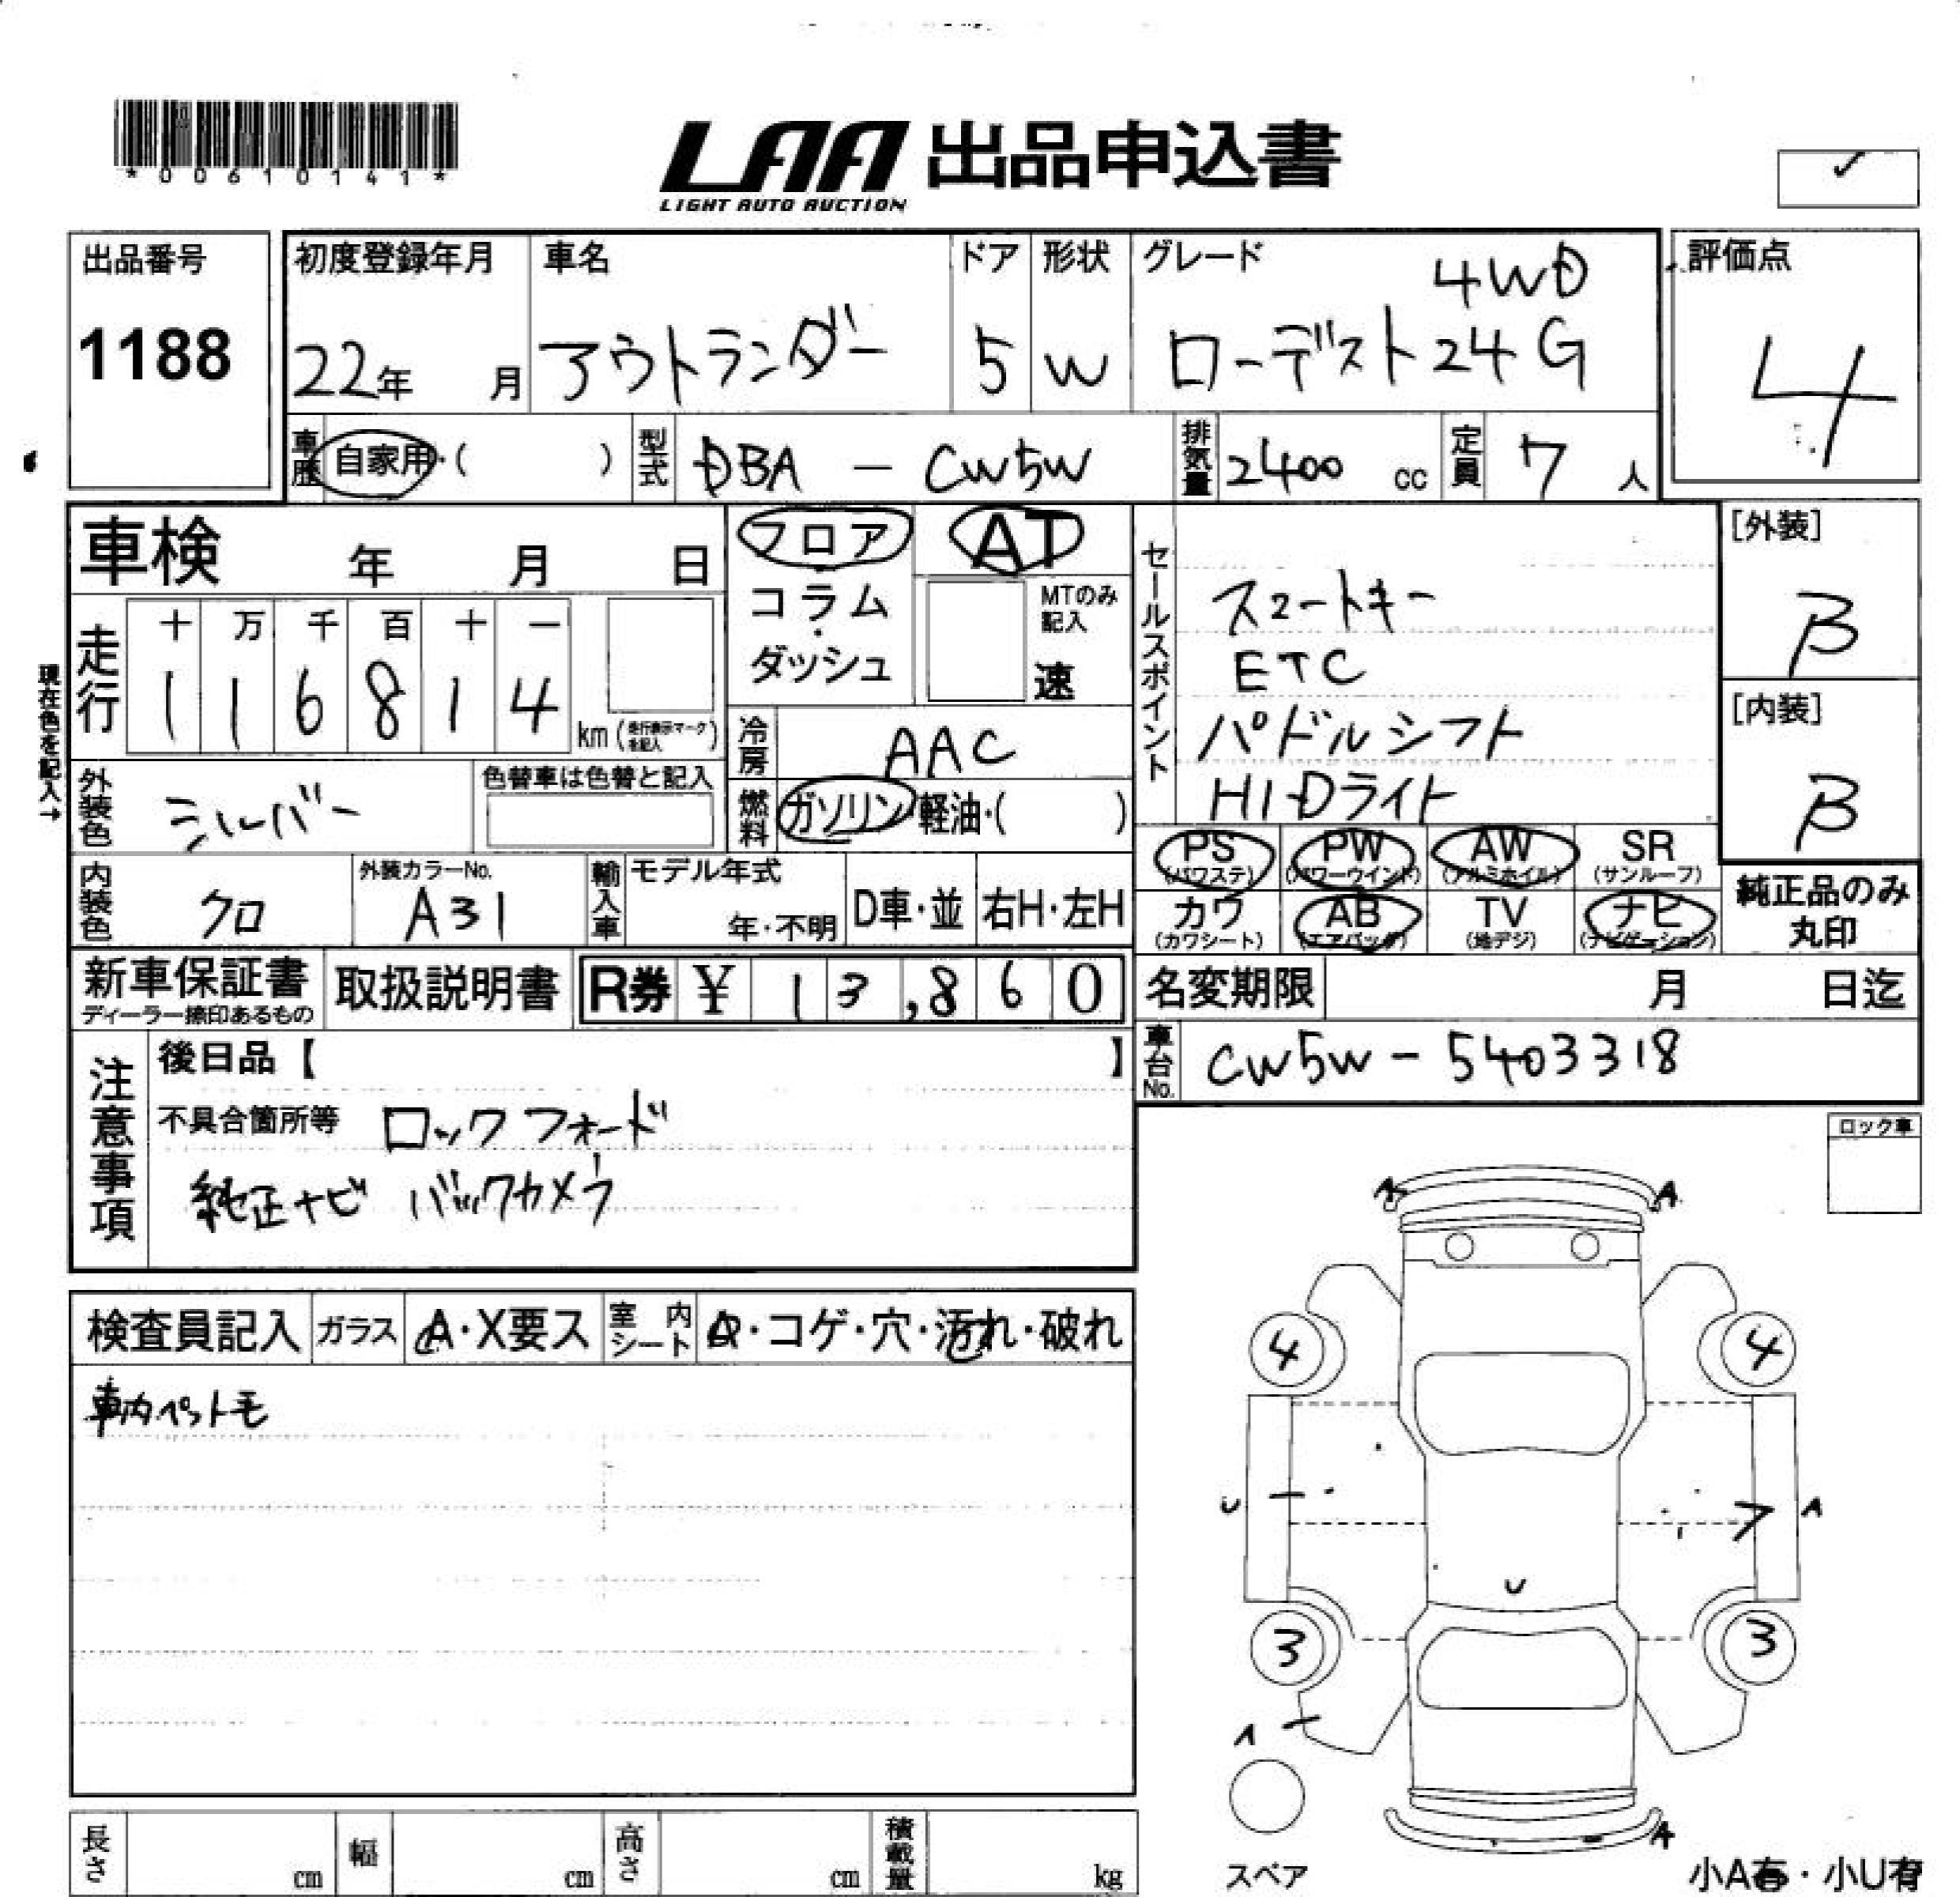 *00610141*
LAA 出品申込書
LIGHT AUTO AUCTION
出品番号
1188
初度登録年月
22年 月
車名
アウトランダー
ドア
5
形状
W
グレード
4WD
ローデスト24G
評価点
4
車歴 自家用・( )
型式 DBA - CW5W
排気量 2400 cc
定員 7 人
車検 年 月 日
フロア・コラム・ダッシュ
AT
MTのみ記入
速
走行
十 万 千 百 十 一
1 1 6 8 1 4
km (走行表示マークを記入)
現在色を記入→
冷房 AAC
燃料 ガソリン・軽油・( )
外装色 シルバー
色替車は色替と記入
内装色 クロ
外装カラーNo.
A31
輸入車 モデル年式
年・不明
D車・並
右H・左H
セールスポイント
スマートキー
ETC
パドルシフト
HIDライト
[外装]
B
[内装]
B
PS (パワステ)
PW (パワーウインド)
AW (アルミホイル)
SR (サンルーフ)
カワ (カワシート)
AB (エアバッグ)
TV (地デジ)
ナビ (ナビゲーション)
純正品のみ
丸印
新車保証書
ディーラー捺印あるもの
取扱説明書
R券 ¥ 13,860
名変期限 月 日迄
車台No. CW5W - 5403318
注意事項
後日品【 】
不具合箇所等 ロックフォード
純正ナビ バックカメラ
ロック車
検査員記入
ガラス A・X要ス
室内シート ・コゲ・穴・汚れ・破れ
車内ペット毛
A A
4 4
U A
U
3 3
A
A
スペア
小A有・小U有
長さ cm
幅 cm
高さ cm
積載量 kg